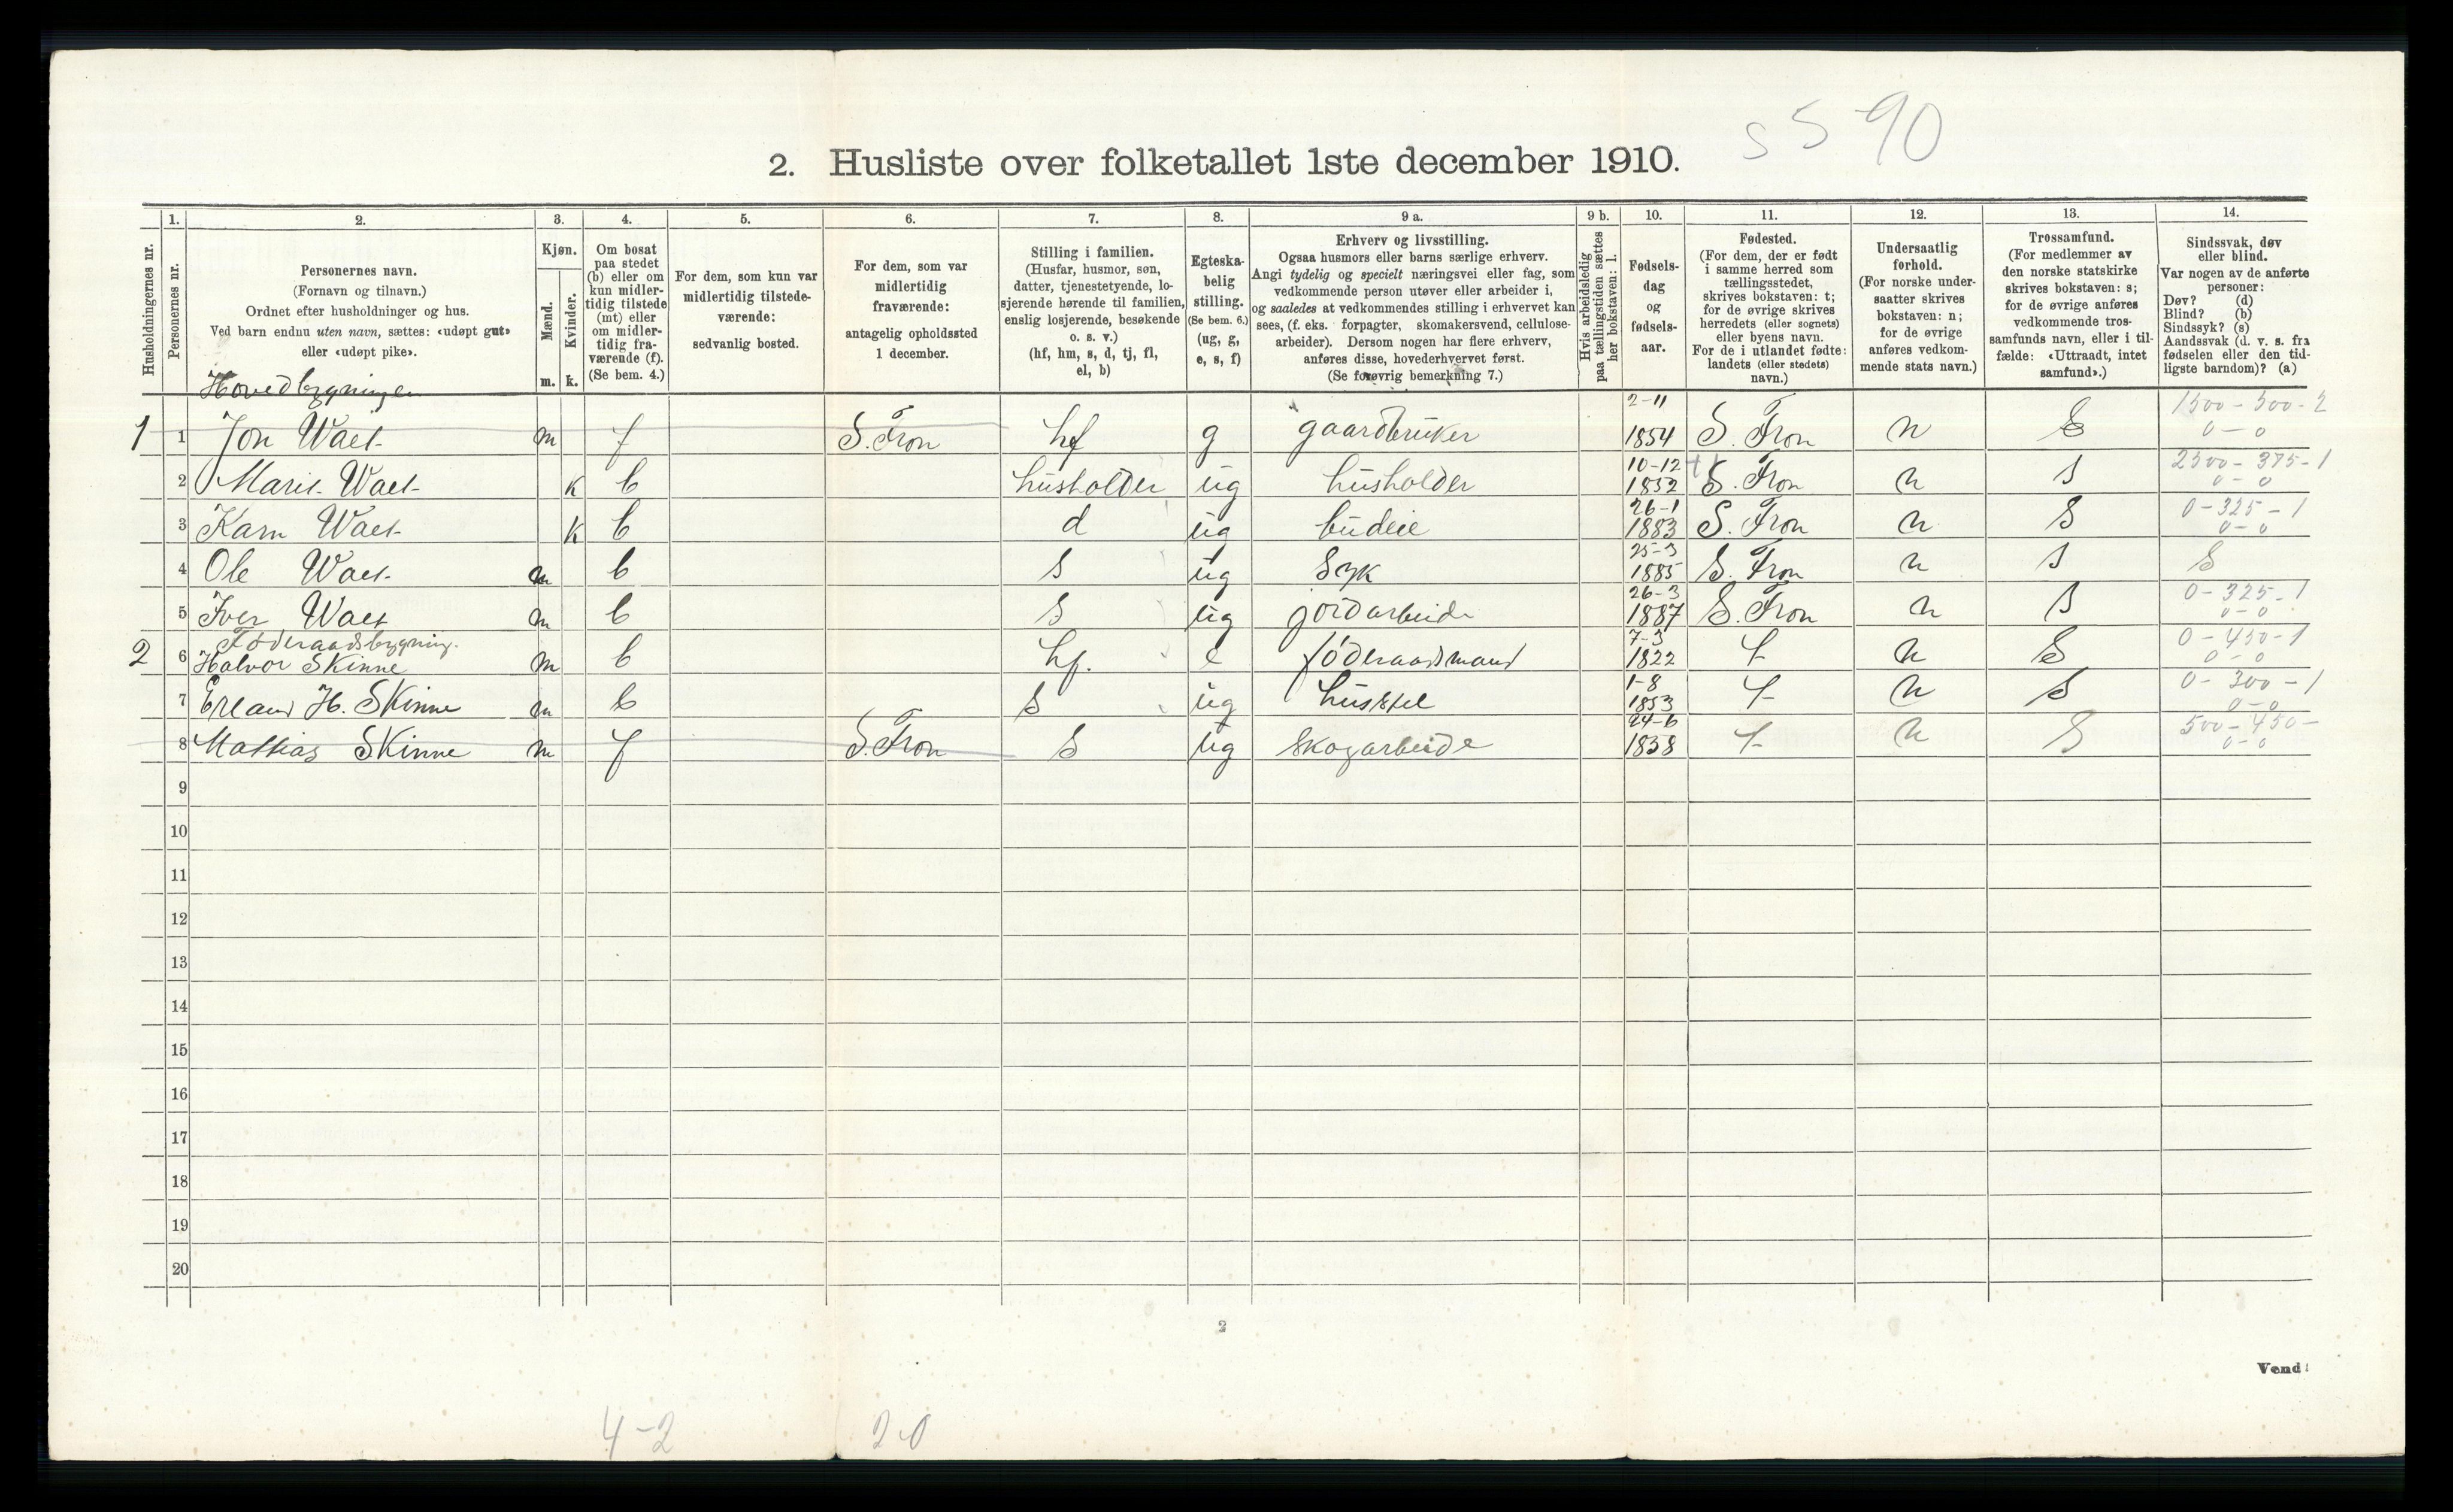 s 5 90
2. Husliste over folketallet 1ste december 1910.
Husholdningernes nr.
1.
Personernes nr.
2.
Personernes navn.
(Fornavn og tilnavn.)
Ordnet efter husholdninger og hus.
Ved barn endnu uten navn, sættes: «udøpt gut»
eller «udøpt pike».
3.
Kjøn.
Mænd.
m.
Kvinder.
k.
4.
Om bosat
paa stedet
(b) eller om
kun midler-
tidig tilstede
(mt) eller
om midler-
tidig fra-
værende (f).
(Se bem. 4.)
5.
For dem, som kun var
midlertidig tilstede-
værende:
sedvanlig bosted.
6.
For dem, som var
midlertidig
fraværende:
antagelig opholdssted
1 december.
7.
Stilling i familien.
(Husfar, husmor, søn,
datter, tjenestetyende, lo-
sjerende hørende til familien,
enslig losjerende, besøkende
o. s. v.)
(hf, hm, s, d, tj, fl,
el, b)
8.
Egteska-
belig
stilling.
(Se bem. 6.)
(ug, g,
e, s, f)
9 a.
Erhverv og livsstilling.
Ogsaa husmors eller barns særlige erhverv.
Angi tydelig og specielt næringsvei eller fag, som
vedkommende person utøver eller arbeider i,
og saaledes at vedkommendes stilling i erhvervet kan
sees, (f. eks. forpagter, skomakersvend, cellulose-
arbeider). Dersom nogen har flere erhverv,
anføres disse, hovederhvervet først.
(Se forøvrig bemerkning 7.)
9 b.
Hvis arbeidsledig
paa tællingstiden sættes
her bokstaven: l.
10.
Fødsels-
dag
og
fødsels-
aar.
11.
Fødested.
(For dem, der er født
i samme herred som
tællingsstedet,
skrives bokstaven: t;
for de øvrige skrives
herredets (eller sognets)
eller byens navn.
For de i utlandet fødte:
landets (eller stedets)
navn.)
12.
Undersaatlig
forhold.
(For norske under-
saatter skrives
bokstaven: n;
for de øvrige
anføres vedkom-
mende stats navn.)
13.
Trossamfund.
(For medlemmer av
den norske statskirke
skrives bokstaven: s;
for de øvrige anføres
vedkommende tros-
samfunds navn, eller i til-
fælde: «Uttraadt, intet
samfund».)
14.
Sindssvak, døv
eller blind.
Var nogen av de anførte
personer:
Døv? (d)
Blind? (b)
Sindssyk? (s)
Aandssvak (d. v. s. fra
fødselen eller den tid-
ligste barndom)? (a)
Hovedbygningen
1 1 Jon Waet m f S. Fron hf g gaardbruker 2-11 1854 S. Fron n S 1500-500-2 0-0
2 Marit Waet k b husholder ug husholder 10-12 1852 S. Fron n s 2500-375-1 0-0
3 Karn Waet k b d ug budeie 26-1 1883 S. Fron n S 0-325-1 0-0
4 Ole Waet m b s ug Syk 25-3 1885 S. Fron n s S
5 Iver Waet m b s ug jordarbeide 26-3 1887 S. Fron n s 0-325-1 0-0
Føderaadsbygning.
2 6 Halvor Skinne m b hf. e føderaadsmand 7-3 1822 t n S 0-450-1 0-0
7 Erland H. Skinne m b s ug husstel 1-8 1853 t n s 0-300-1 0-0
8 Mathias Skinne m f S. Fron s ug Skogarbeide 24-6 1858 t n S 500-450- 0-0
9
10
11
12
13
14
15
16
17
18
19
20
2
Vend!
4-2 2-0